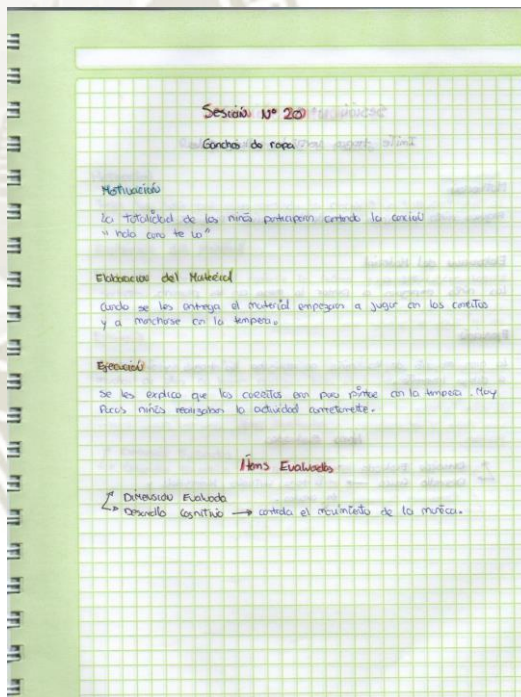 Sesión Nº 20
Ganchos de ropa
Motivación
La totalidad de los niños participan cantando la canción
"hola como te va"
Elaboración del Material
Cuando se les entrega el material empezaron a jugar con los
y a mancharse con la tempera.
Ejecución
Se les explico que los eran para pintar con la tempera. Muy
Pocos niños realizaban la actividad correctamente.
Items Evaluados
Dimensión Evaluada
Desarrollo Cognitivo → controla el movimiento de la muñeca.